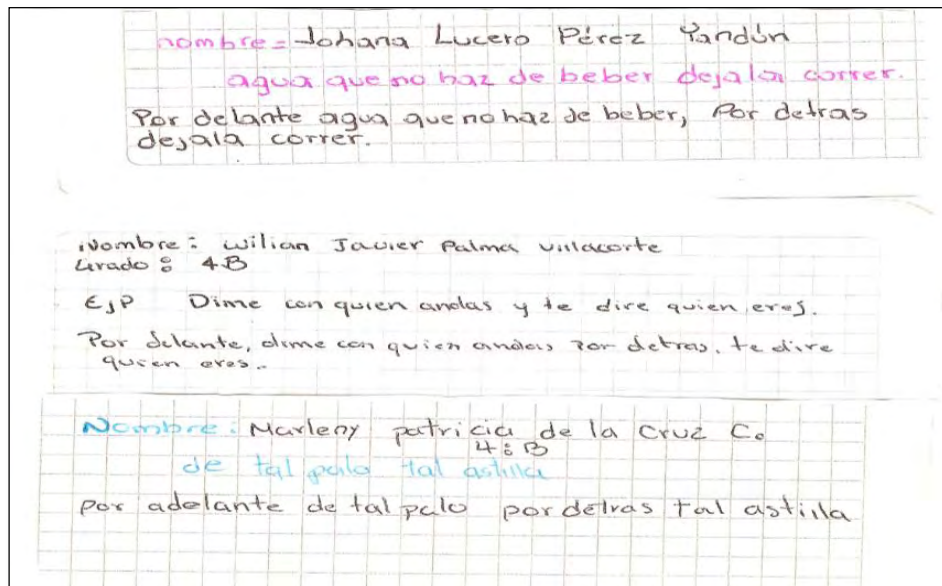 nombre= Johana Lucero Pérez Yandún
agua que no haz de beber dejala correr.
Por delante agua que no haz de beber, Por detras
dejala correr.
Nombre: wilian Javier Palma villacorte
Grado: 4B
EJP Dime con quien andas y te dire quien eres.
Por delante, dime con quien andas Por detras, te dire
quien eres.
Nombre: Marleny patricia de la Cruz C.
4:B
de tal palo tal astilla
por adelante de tal palo por detras tal astilla